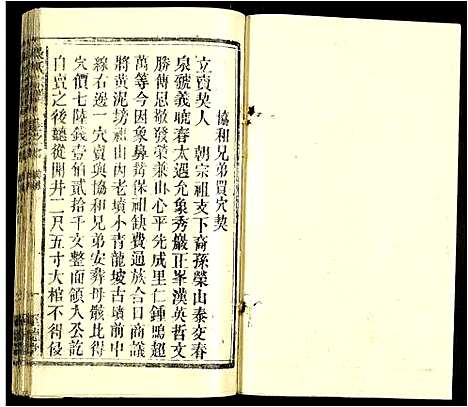 協和兄弟買穴契
立賣契人　朝宗祖支下裔孫榮山泰交春
泉號義曉春太遇允象秀嚴正峯漢英哲文
勝傳思敬發榮兼山心平先成里仁鍾鳴超
萬等今因象鼻塝保祖缺費通族合日商議
將黃泥坊祖山內老墳小青龍坡古墳前中
線右邊一穴賣與協和兄弟安葬母骸比得
穴價七陸錢壹佰貳拾千文整面領入公訖
自賣之後聽從開井二尺五寸大棺不得侵